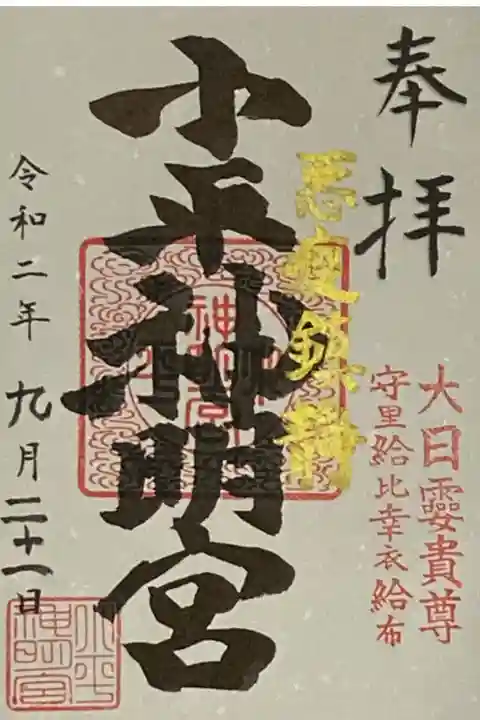 奉拝
大日孁貴尊
守里給比幸衣給布
悪疫鎮静
小平神明宮
令和二年九月二十一日
小平神明宮